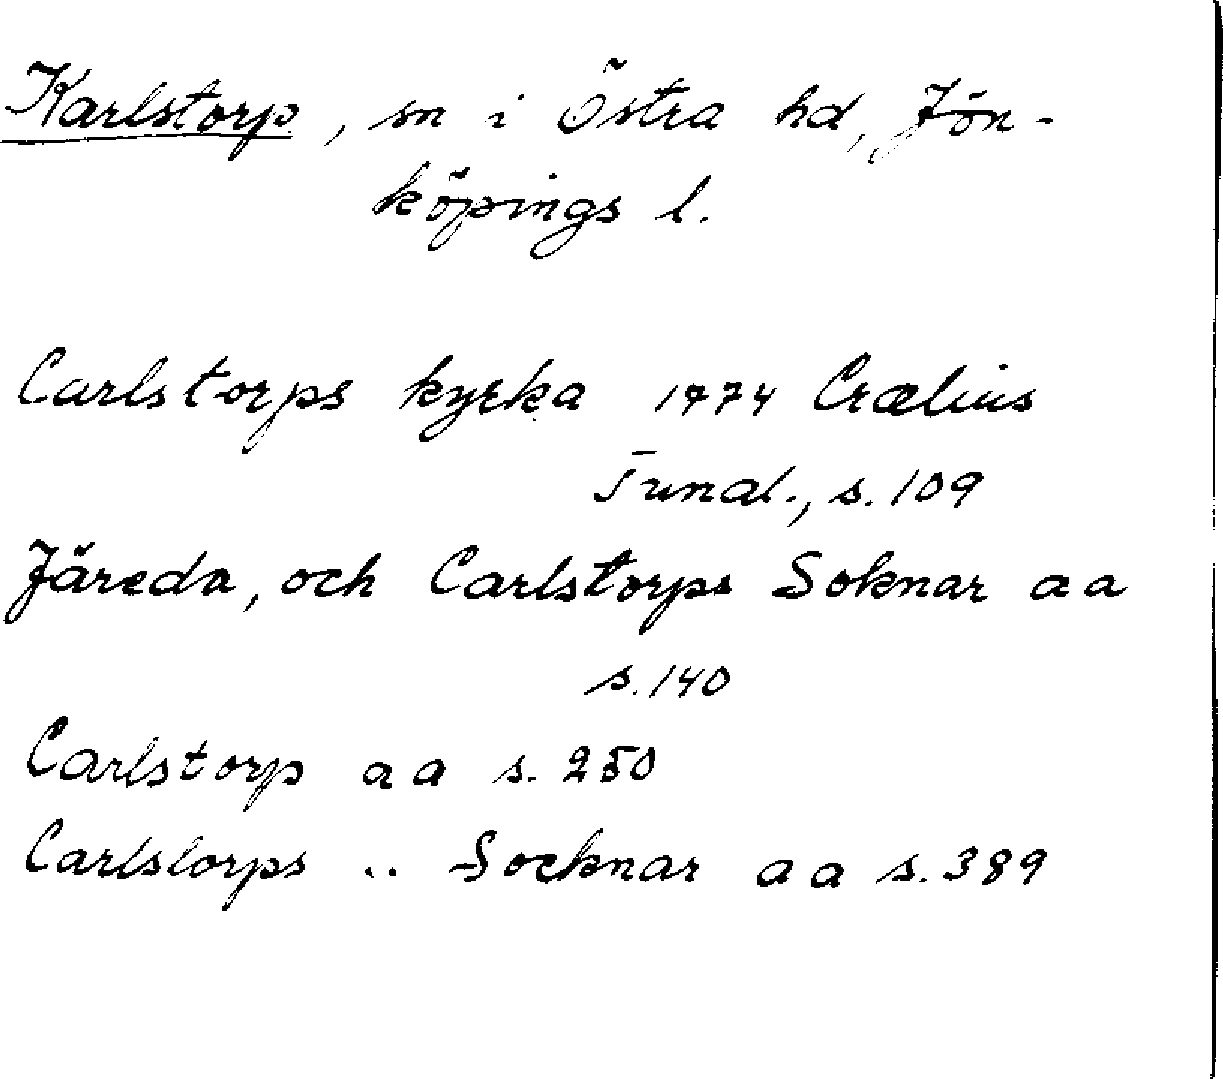 Karlstorp, sn i Östra hd, Jön-
köpings l.
Carlstorps kyrka 1774 Crælius
Tunal., s. 109
Järeda, och Carlstorps Soknar aa
s. 140
Carlstorp aa s. 250
Carlstorps .. Socknar aa s. 389